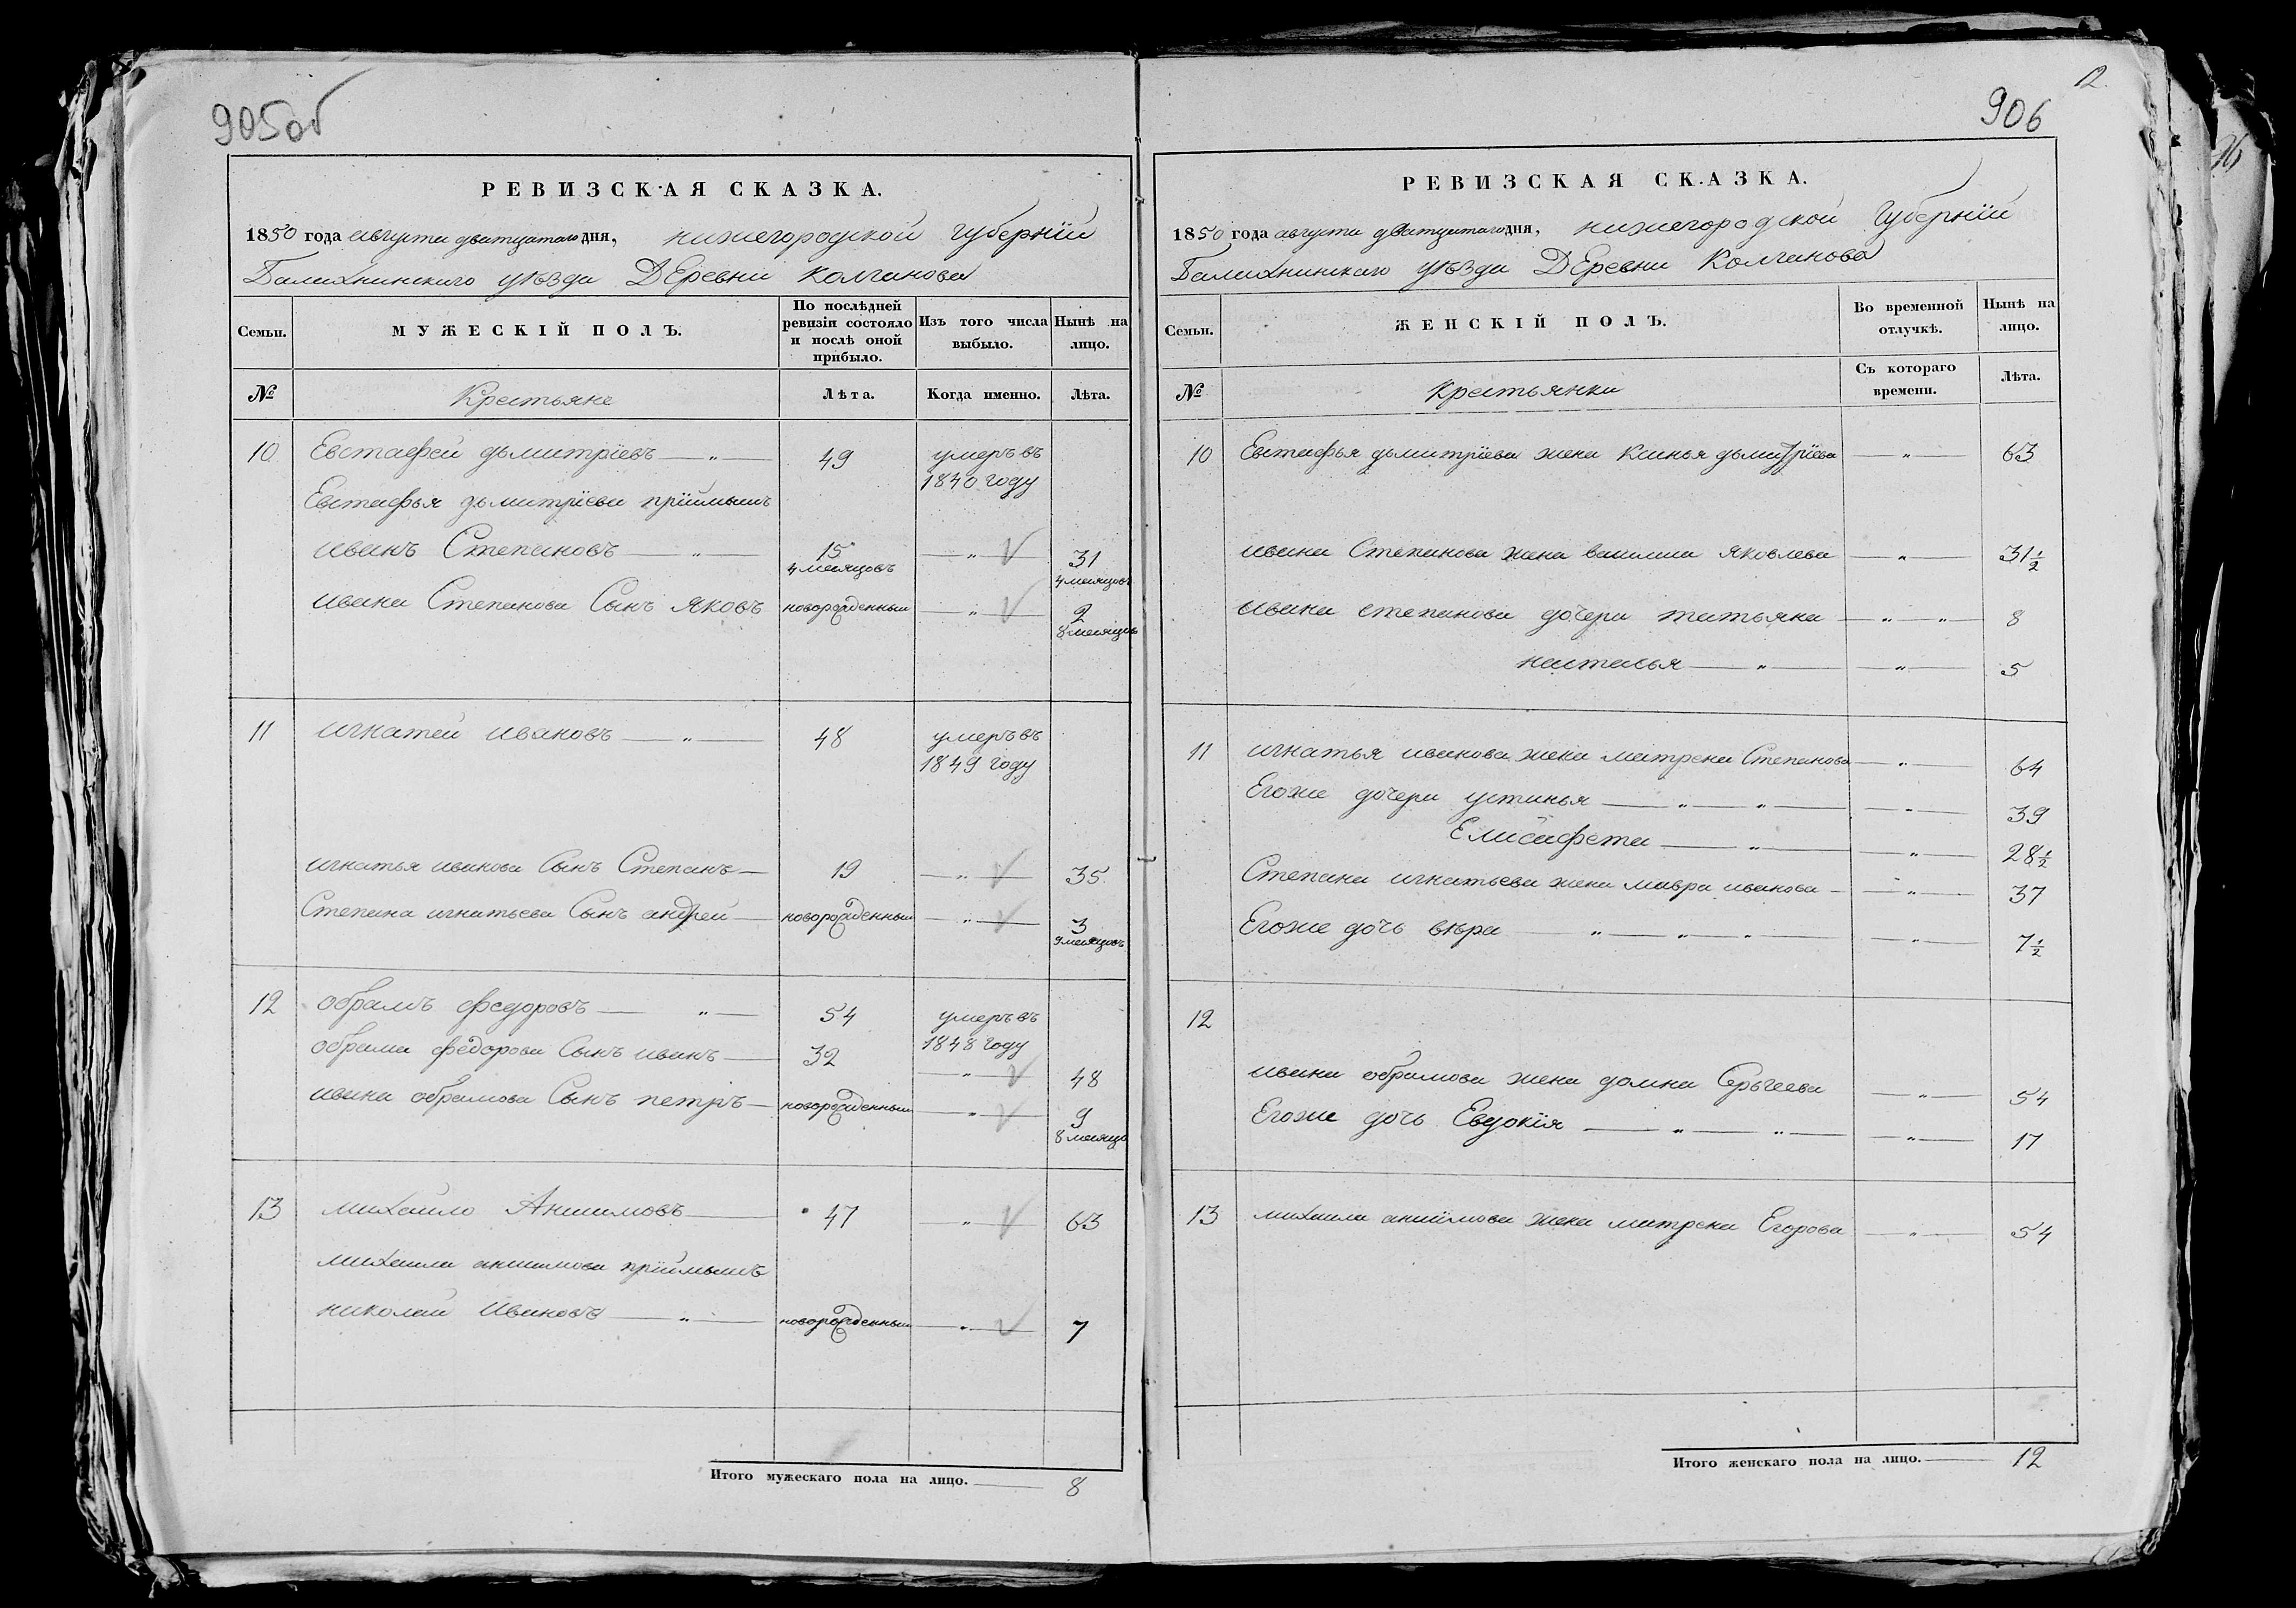 905об
РЕВИЗСКАЯ СКАЗКА.
1850 года августа дватцатаго дня, нижегородской губернїи
Балахнинскаго уѣзда Деревни Колчанова
Семьи.
МУЖЕСКІЙ ПОЛЪ.
По послѣдней ревизіи состояло и послѣ оной прибыло.
Изъ того числа выбыло.
Нынѣ на лицо.
№
Крестьяне
Лѣта.
Когда именно.
Лѣта.
10 Евстафей дьмитрїевъ — „ — 49 умеръ въ
1840 году
Евстафья дьмитрїева прїимышъ
иванъ Степановъ — „ — 15 — „ — 31
4 месяцовъ 4 месяцовъ
ивана Степанова Сынъ яковъ новорожденный — „ — 2
8 месяцовъ
11 игнатей ивановъ — „ — 48 умеръ въ
1849 году
игнатья иванова Сынъ Степанъ — 19 — „ — 35
Степана игнатьева Сынъ андрей — новорожденный — „ — 3
9 месяцовъ
12 обрамъ федоровъ — „ — 54 умеръ въ
1848 году
обрама федорова Сынъ иванъ — 32 — „ — 48
ивана обрамова Сынъ петръ — новорожденный — „ — 9
8 месяцо
13 михаило Анисимовъ — 47 — „ — 63
михаила анисимова прїимышъ
николай Ивановъ — „ — новорожденный — „ — 7
Итого мужескаго пола на лицо. — 8
12.
906
РЕВИЗСКАЯ СКАЗКА.
1850 года августа дватцатаго дня, нижегородской губернїи
Балахнинскаго уѣзда Деревни Колчанова
Семьи.
ЖЕНСКІЙ ПОЛЪ.
Во временной отлучкѣ.
Нынѣ на лицо.
№
Крестьянки
Съ котораго времени.
Лѣта.
10 Евстафья дьмитрїева жена Ксинья дьмитрїева — „ — 63
ивана Степанова жена василиса яковлева — „ — 31½
ивана степанова дочери татьяна — „ — „ — 8
наталья — „ — — „ — 5
11 игнатья иванова жена матрена Степанова — „ — 64
Егоже дочери устинья — „ — „ — — „ — 39
Елисафета — „ — — „ — 28½
Степана игнатьева жена мавра иванова — — „ — 37
Егоже дочь вѣра — „ — „ — „ — — „ — 7½
12
ивана обрамова жена домна Серьгеева — „ — 54
Егоже дочь Евдокїя — „ — „ — — „ — 17
13 михаила анисимова жена матрена Егорова — „ — 54
Итого женскаго пола на лицо. — 12